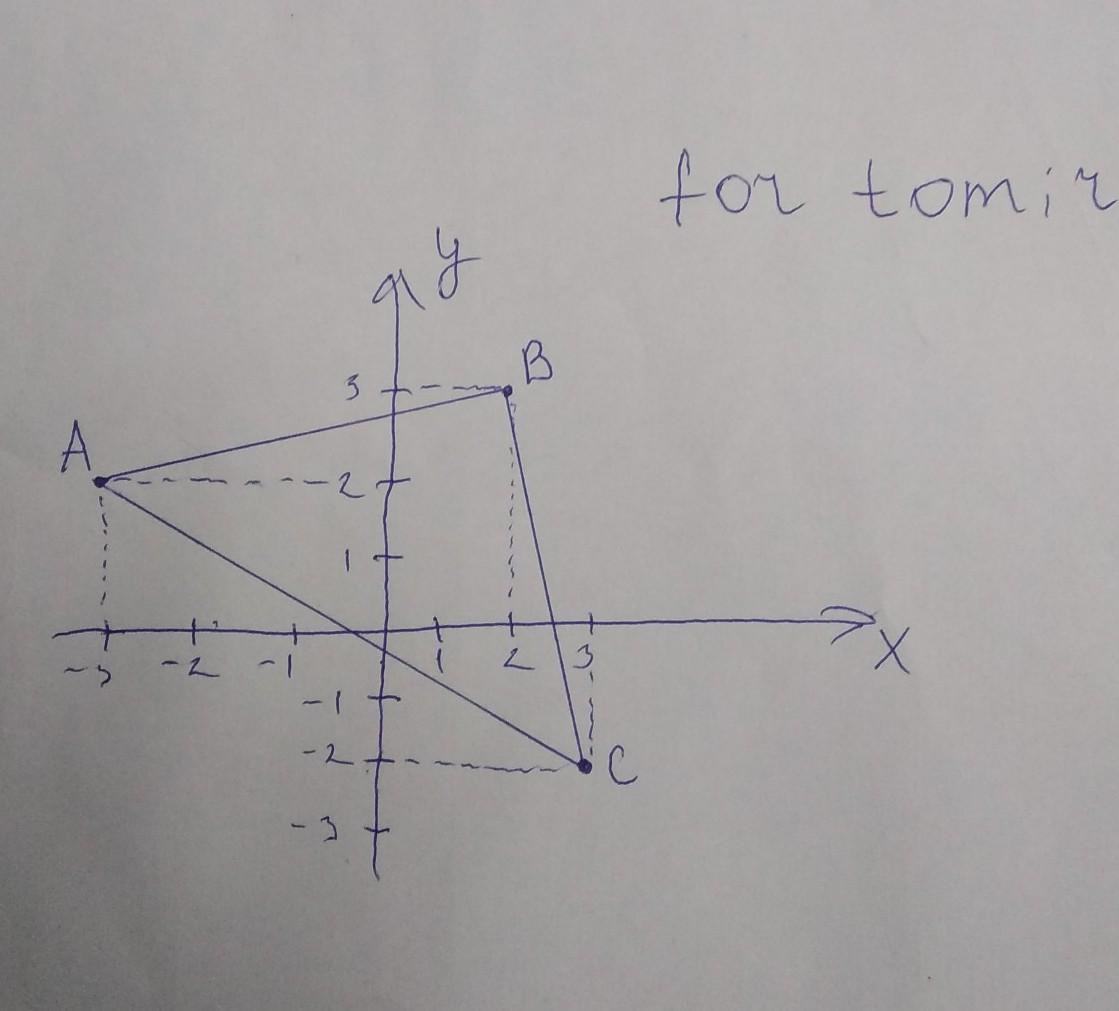 for tomir
y
B
3
A
2
1
-3 -2 -1 1 2 3
X
-1
-2
C
-3